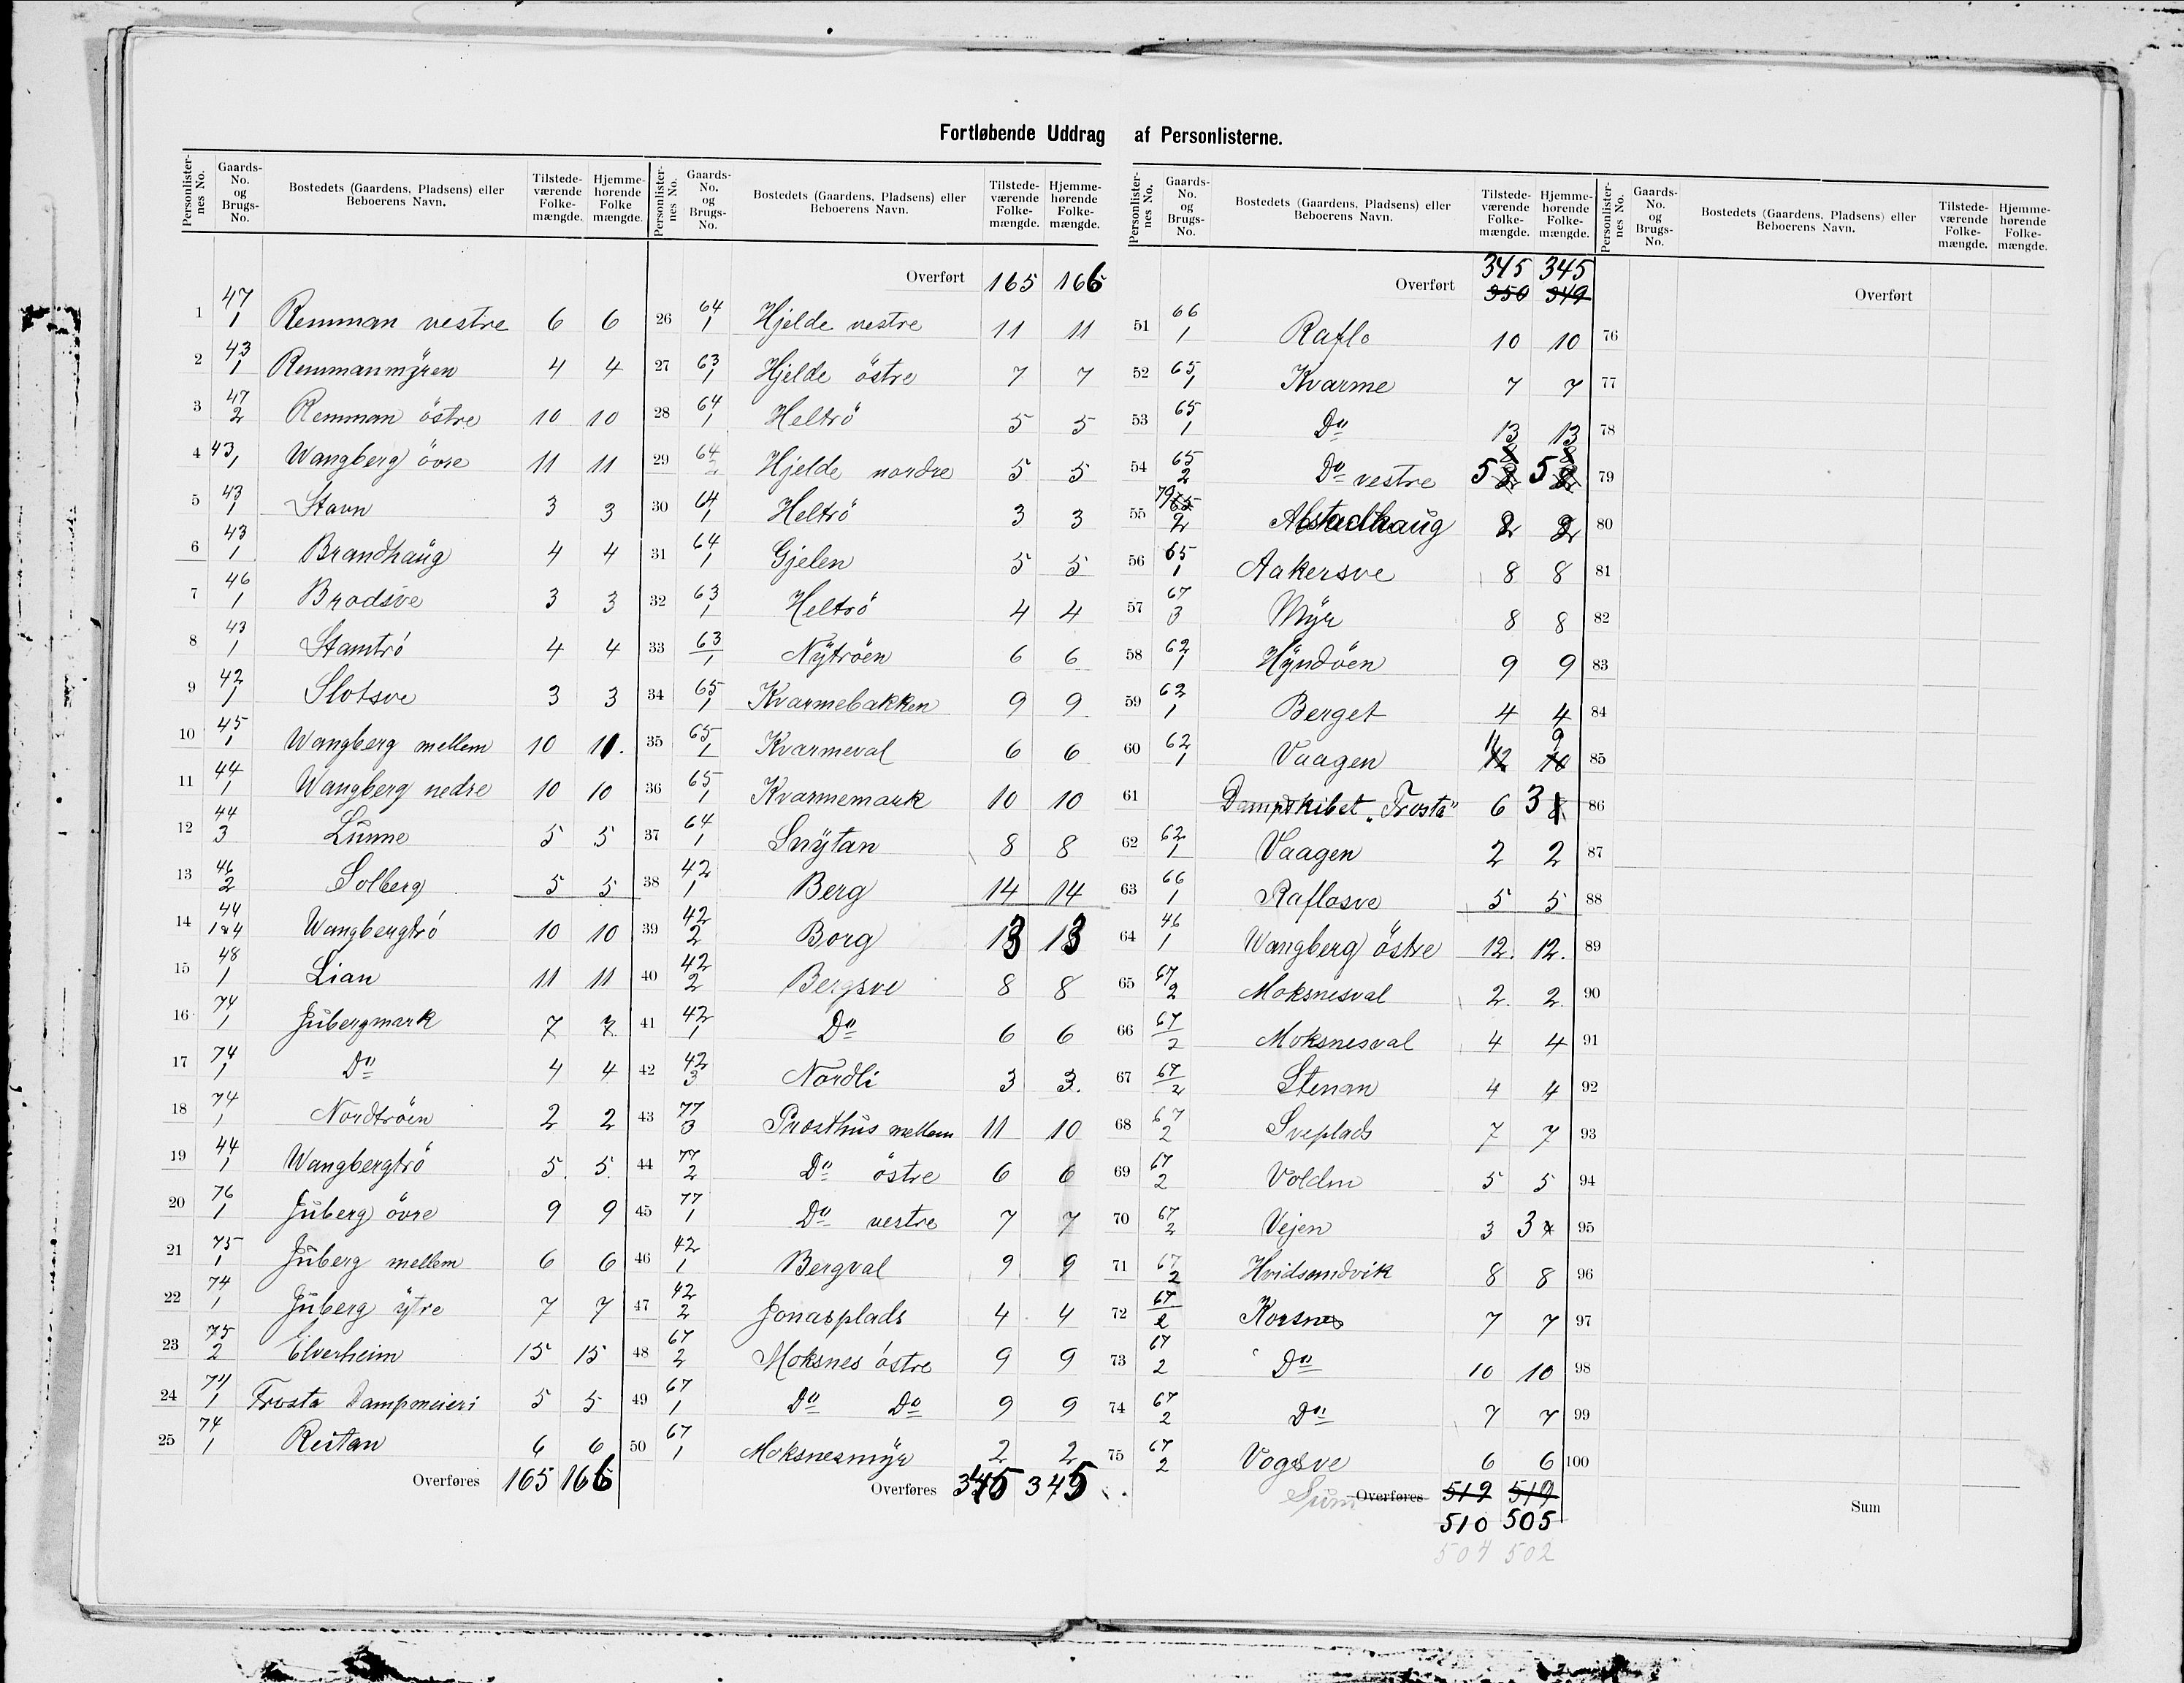 Fortløbende Uddrag af Personlisterne.
Personlisternes No. Gaards-No. og Brugs-No. Bostedets (Gaardens, Pladsens) eller Beboerens Navn. Tilstedeværende Folkemængde. Hjemmehørende Folkemængde.
1 47/1 Remman vestre 6 6
2 43/1 Remmanmÿren 4 4
3 47/2 Remman östre 10 10
4 43/1 Wangberg övre 11 11
5 43/1 Stavn 3 3
6 43/1 Brandhaug 4 4
7 46/1 Brodsve 3 3
8 43/1 Stamtrö 4 4
9 42/1 Slotsve 3 3
10 45/1 Wangberg mellem 10 11.
11 44/1 Wangberg nedre 10 10
12 44/3 Lunne 5 5
13 46/2 Solberg 5 5
14 44/1&4 Wangbergtrö 10 10
15 48/1 Lian 11 11
16 74/1 Jubergmark 7 7
17 74/1 Do 4 4
18 74/1 Nordtröen 2 2
19 44/1 Wangbergtrö 5. 5.
20 76/1 Juberg övre 9 9
21 75/1 Juberg mellem 6 6
22 74/1 Juberg ÿtre 7 7
23 75/2 Elverheim 15 15
24 74/1 Frosta Dampmeieri 5 5
25 74/1 Reitan 6 6
Overføres 165 166
Personlisternes No. Gaards-No. og Brugs-No. Bostedets (Gaardens, Pladsens) eller Beboerens Navn. Tilstedeværende Folkemængde. Hjemmehørende Folkemængde.
Overført 165 166
26 64/1 Hjelde vestre 11 11
27 63/1 Hjelde östre 7 7
28 64/1 Heltrö 5 5
29 64/2 Hjelde nordre 5 5
30 64/1 Heltrö 3 3
31 64/1 Gjelen 5 5
32 63/1 Heltrö 4 4
33 63/1 Nÿtröen 6 6
34 65/1 Kvarmebakken 9 9
35 65/1 Kvarmeval 6 6
36 65/1 Kvarmemark 10 10
37 64/1 Snÿtan 8 8
38 42/1 Berg 14 14
39 42/2 Borg 13 13
40 42/2 Bergsve 8 8
41 42/1 Do 6 6
42 42/3 Nordli 3 3.
43 77/3 Prosthus mellem 11 10
44 77/2 Do östre 6 6
45 77/1 Do vestre 7 7
46 42/1 Bergval 9 9
47 42/2 Jonasplads 4 4
48 67/2 Moksnes östre 9 9
49 67/1 Do Do 9 9
50 67/1 Moksnesmÿr 2 2
Overføres 345 345
Personlisternes No. Gaards-No. og Brugs-No. Bostedets (Gaardens, Pladsens) eller Beboerens Navn. Tilstedeværende Folkemængde. Hjemmehørende Folkemængde.
345 345
Overført 350 349
51 66/1 Raflo 10 10
52 65/1 Kvarme 7 7
53 65/1 Do 13 13
54 65/2 Do vestre 5 8 5 8
55 79 65/2 Alstadhaug 2 2
56 65/1 Aakersve 8 8
57 67/3 Mÿr 8 8
58 62/1 Hÿndöen 9 9
59 62/1 Berget 4 4
60 62/1 Vaagen 11 12 9 10
61 Dampskibet „Frosta" 6 3
62 62/1 Vaagen 2 2
63 66/1 Raflosve 5 5
64 46/1 Wangberg östre 12. 12.
65 67/2 Moksnesval 2. 2.
66 67/2 Moksnesval 4 4
67 67/2 Stenan 4 4
68 67/2 Sveplads 7 7
69 67/2 Volden 5 5
70 67/2 Vejen 3 3
71 67/2 Hvidsandvik 8 8
72 67/2 Korsnes 7 7
73 67/2 Do 10 10
74 67/2 Do 7 7
75 67/2 Vogsve 6 6
Sum Overføres 519 519
510 505
504 502
Personlisternes No. Gaards-No. og Brugs-No. Bostedets (Gaardens, Pladsens) eller Beboerens Navn. Tilstedeværende Folkemængde. Hjemmehørende Folkemængde.
Overført
76
77
78
79
80
81
82
83
84
85
86
87
88
89
90
91
92
93
94
95
96
97
98
99
100
Sum